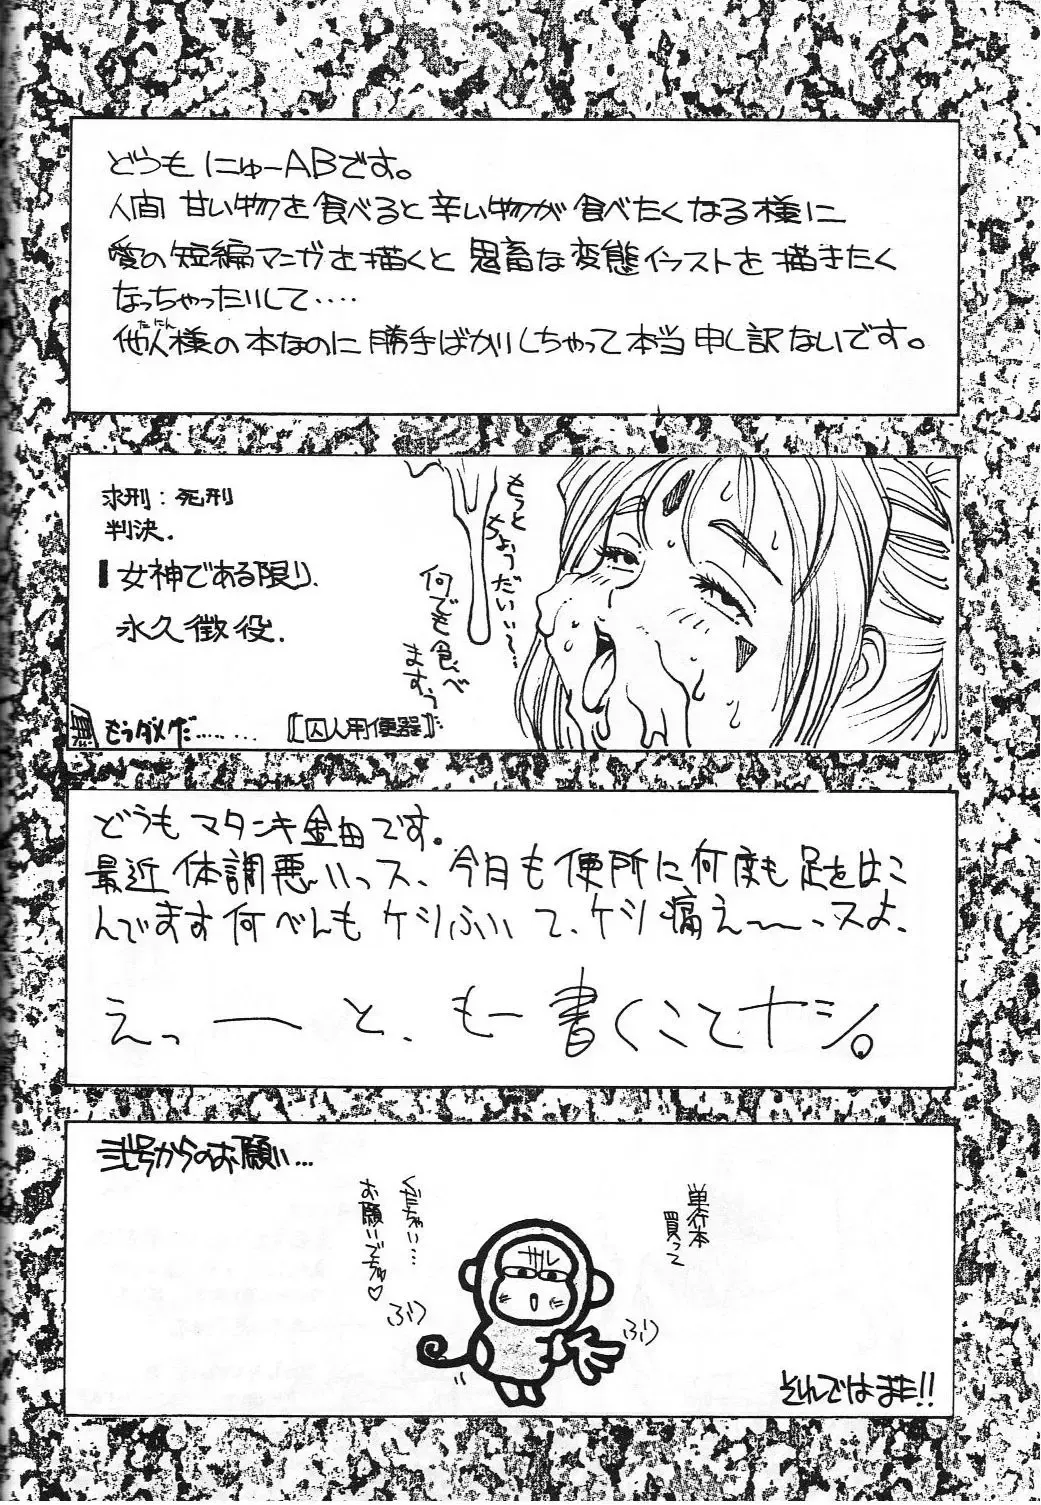 どうも にゅーABです。
人間 甘い物を食べると辛い物が食べたくなる様に
愛の短編マンガを描くと鬼畜な変態イラストを描きたく
なっちゃったりして‥‥
他人様の本なのに勝手ばかりしちゃって本当申し訳ないです。
たにん
求刑:死刑
判決.
女神である限り.
永久懲役.
もうダメだ.........
【囚人用便器】
もっと
ちょうだいい〜…
何でも食べ
ますっ
どうも マタンキ金田です。
最近 体調悪いっス、今日も便所に何度も足をはこ
んでます何べんもケツふいて、ケツ痛え〜〜っスよ、
えっーーと、もー書くことナシ。
弐号からのお願い…
単行本
買って
くだちゃい…
お願いでちゅ♡
サル
ふり
ふり
それではまた!!